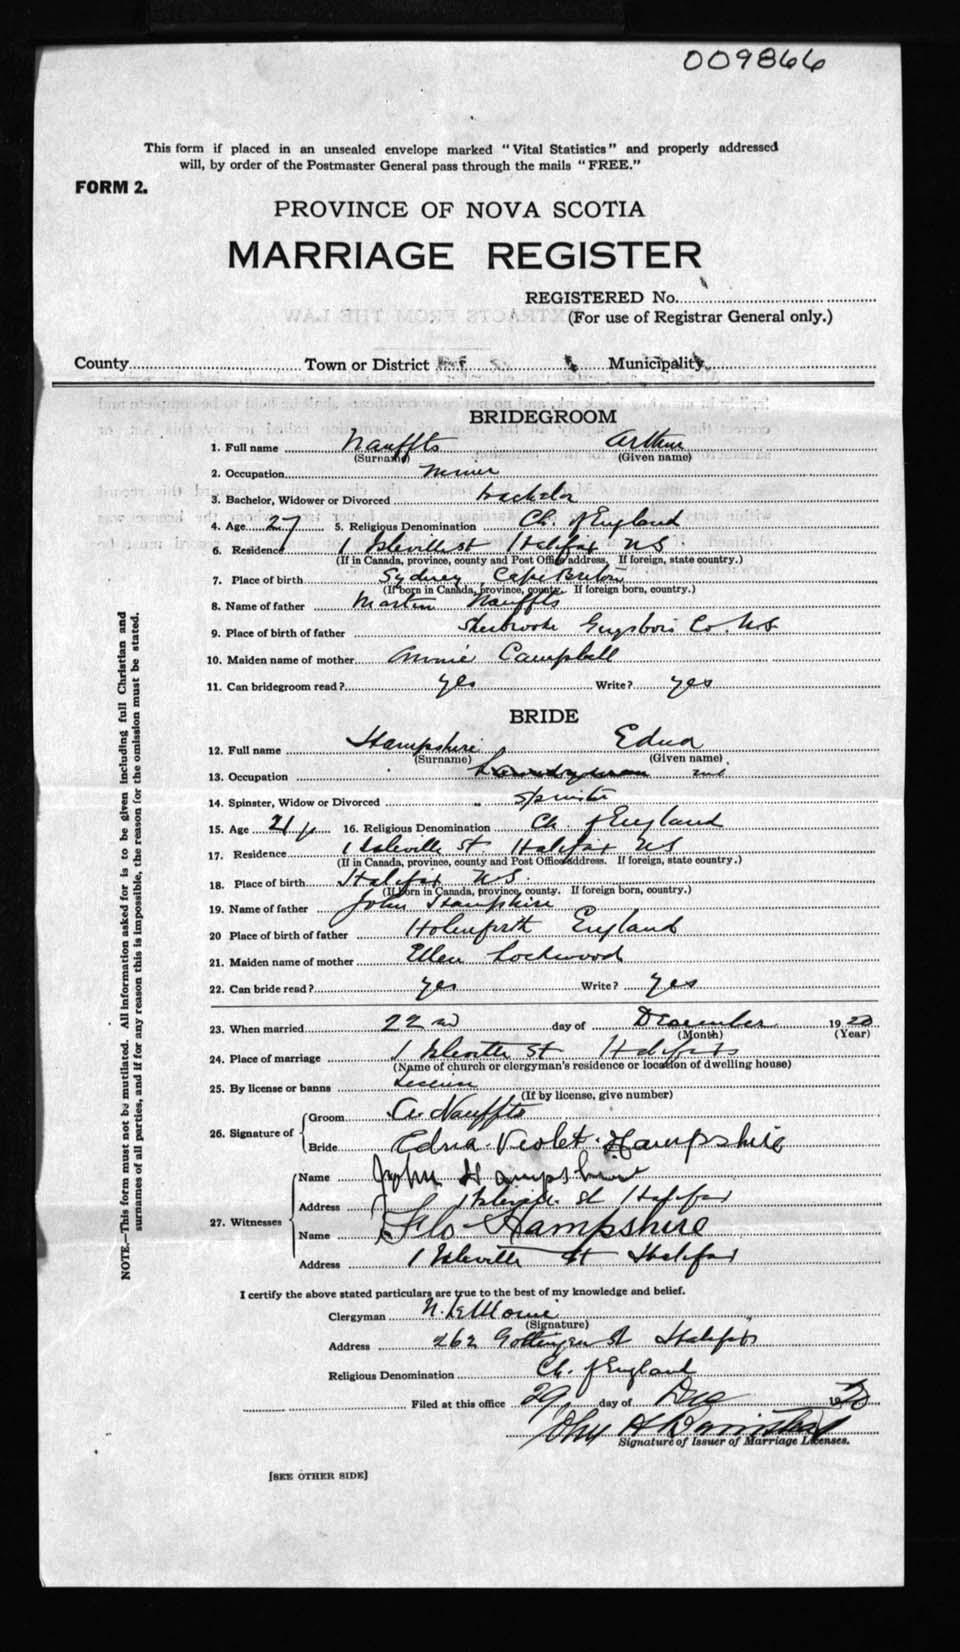 009866
This form if placed in an unsealed envelope marked "Vital Statistics" and properly addressed
will, by order of the Postmaster General pass through the mails "FREE."
FORM 2.
PROVINCE OF NOVA SCOTIA
MARRIAGE REGISTER
REGISTERED No.
(For use of Registrar General only.)
County Town or District Municipality
BRIDEGROOM
1. Full name Nauffts Arthur
(Surname) (Given name)
2. Occupation
3. Bachelor, Widower or Divorced bachelor
4. Age 27 5. Religious Denomination Ch. of England
6. Residence 1 Isleville st Halifax NS
(If in Canada, province, county and Post Office address, If foreign, state country.)
7. Place of birth Sydney Cape Breton
(If born in Canada, province, county. If foreign born, country.)
8. Name of father Martin Nauffts
9. Place of birth of father Sherbrooke Guysboro Co. N.S
10. Maiden name of mother Annie Campbell
11. Can bridegroom read? yes Write? yes
BRIDE
12. Full name Hampshire Edna
(Surname) (Given name)
13. Occupation
14. Spinster, Widow or Divorced spinster
15. Age 21 16. Religious Denomination Ch. of England
17. Residence 1 Isleville St Halifax NS
(If in Canada, province, county and Post Office address. If foreign, state country.)
18. Place of birth Halifax N.S.
(If born in Canada, province, county. If foreign born, country.)
19. Name of father John Hampshire
20 Place of birth of father Holmfirth England
21. Maiden name of mother Ellen Lockwood
22. Can bride read? yes Write? yes
23. When married 22nd day of December 1920
(Month) (Year)
24. Place of marriage 1 Isleville St Halifax
(Name of church or clergyman's residence or location of dwelling house)
25. By license or banns License
(If by license, give number)
26. Signature of Groom A. Nauffts
Bride Edna Violet Hampshire
27. Witnesses Name John Hampshire
Address 1 Isleville St Halifax
Name Flo Hampshire
Address 1 Isleville St Halifax
I certify the above stated particulars are true to the best of my knowledge and belief.
Clergyman
(Signature)
Address 262 Gottingen St Halifax
Religious Denomination Ch. of England
Filed at this office 29 day of Dec 1920
John
Signature of Issuer of Marriage Licenses.
[SEE OTHER SIDE]
NOTE.—This form must not be mutilated. All information asked for is to be given including full Christian and
surnames of all parties, and if for any reason this is impossible, the reason for the omission must be stated.